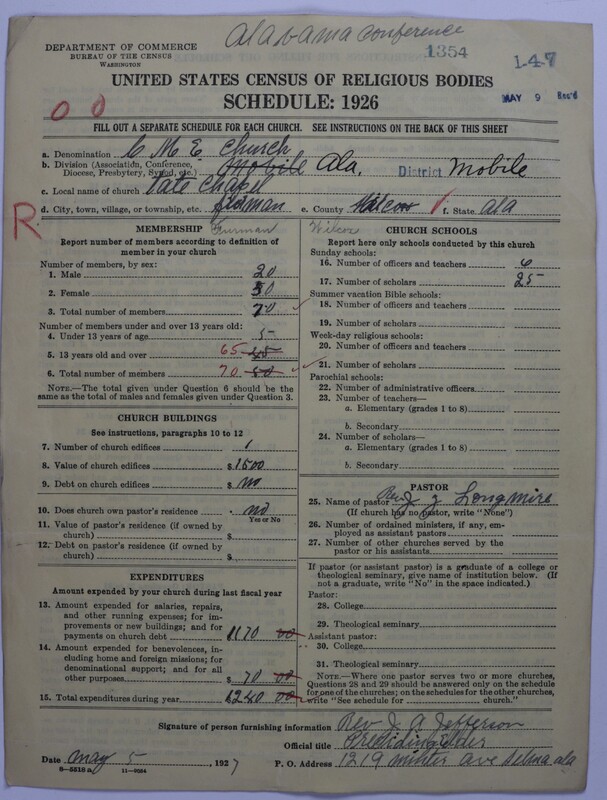 Alabama Conference
DEPARTMENT OF COMMERCE
BUREAU OF THE CENSUS
WASHINGTON
1354
147
MAY 9
UNITED STATES CENSUS OF RELIGIOUS BODIES
SCHEDULE: 1926
00
FILL OUT A SEPARATE SCHEDULE FOR EACH CHURCH. SEE INSTRUCTIONS ON THE BACK OF THIS SHEET
a. Denomination C M E Church
b. Division (Association, Conference, Diocese, Presbytery, Synod, etc.) Mobile Ala, District Mobile
c. Local name of church Tate Chapel
d. City, town, village, or township, etc. Furman e. County Wilcox f. State Ala
R
MEMBERSHIP Furman
Report number of members according to definition of
member in your church
Number of members, by sex:
1. Male 20
2. Female 50
3. Total number of members 70
Number of members under and over 13 years old:
4. Under 13 years of age 5
5. 13 years old and over 65 45
6. Total number of members 70 50
NOTE.—The total given under Question 6 should be
same as the total of males and females given under Question 3.
CHURCH BUILDINGS
See instructions, paragraphs 10 to 12
7. Number of church edifices 1
8. Value of church edifices $1500
9. Debt on church edifices $ No
10. Does church own pastor's residence No
Yes or No
11. Value of pastor's residence (if owned by
church) $
12. Debt on pastor's residence (if owned by
church) $
EXPENDITURES
Amount expended by your church during last fiscal year
13. Amount expended for salaries, repairs,
and other running expenses; for im-
provements or new buildings; and for
payments on church debt $1170 00
14. Amount expended for benevolences, in-
cluding home and foreign missions; for
denominational support; and for all
other purposes $ 70 00
15. Total expenditures during year $1240 00
Wilcox
CHURCH SCHOOLS
Report here only schools conducted by this church
Sunday schools:
16. Number of officers and teachers 6
17. Number of scholars 25
Summer vacation Bible schools:
18. Number of officers and teachers
19. Number of scholars
Week-day religious schools:
20. Number of officers and teachers
21. Number of scholars
Parochial schools:
22. Number of administrative officers
23. Number of teachers—
a. Elementary (grades 1 to 8)
b. Secondary
24. Number of scholars—
a. Elementary (grades 1 to 8)
b. Secondary
PASTOR
25. Name of pastor Rev J Z Longmire
(If church has no pastor, write "None")
26. Number of ordained ministers, if any, em-
ployed as assistant pastors
27. Number of other churches served by the
pastor or his assistants
If pastor (or assistant pastor) is a graduate of a college or
theological seminary, give name of institution below. (If
not a graduate, write "No" in the space indicated.)
Pastor:
28. College
29. Theological seminary
Assistant pastor:
30. College
31. Theological seminary
NOTE.—Where one pastor serves two or more churches,
Questions 28 and 29 should be answered only on the schedule
for one of the churches; on the schedules for the other churches,
write "See schedule for church."
Signature of person furnishing information Rev J. A. Jefferson
Official title Presiding Elder
Date May 5, 1927 P. O. Address 1219 Minter ave Selma ala
8—5518 a 11—9584